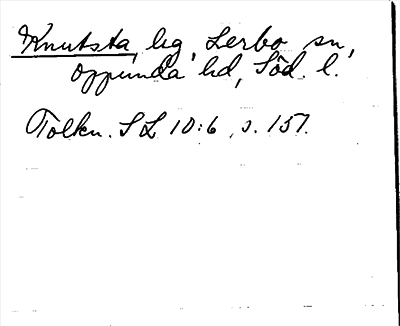 Knutsta, hg, Lerbo sn,
Oppunda hd, Söd. l.
Tolkn. SL 10:6, s. 151.